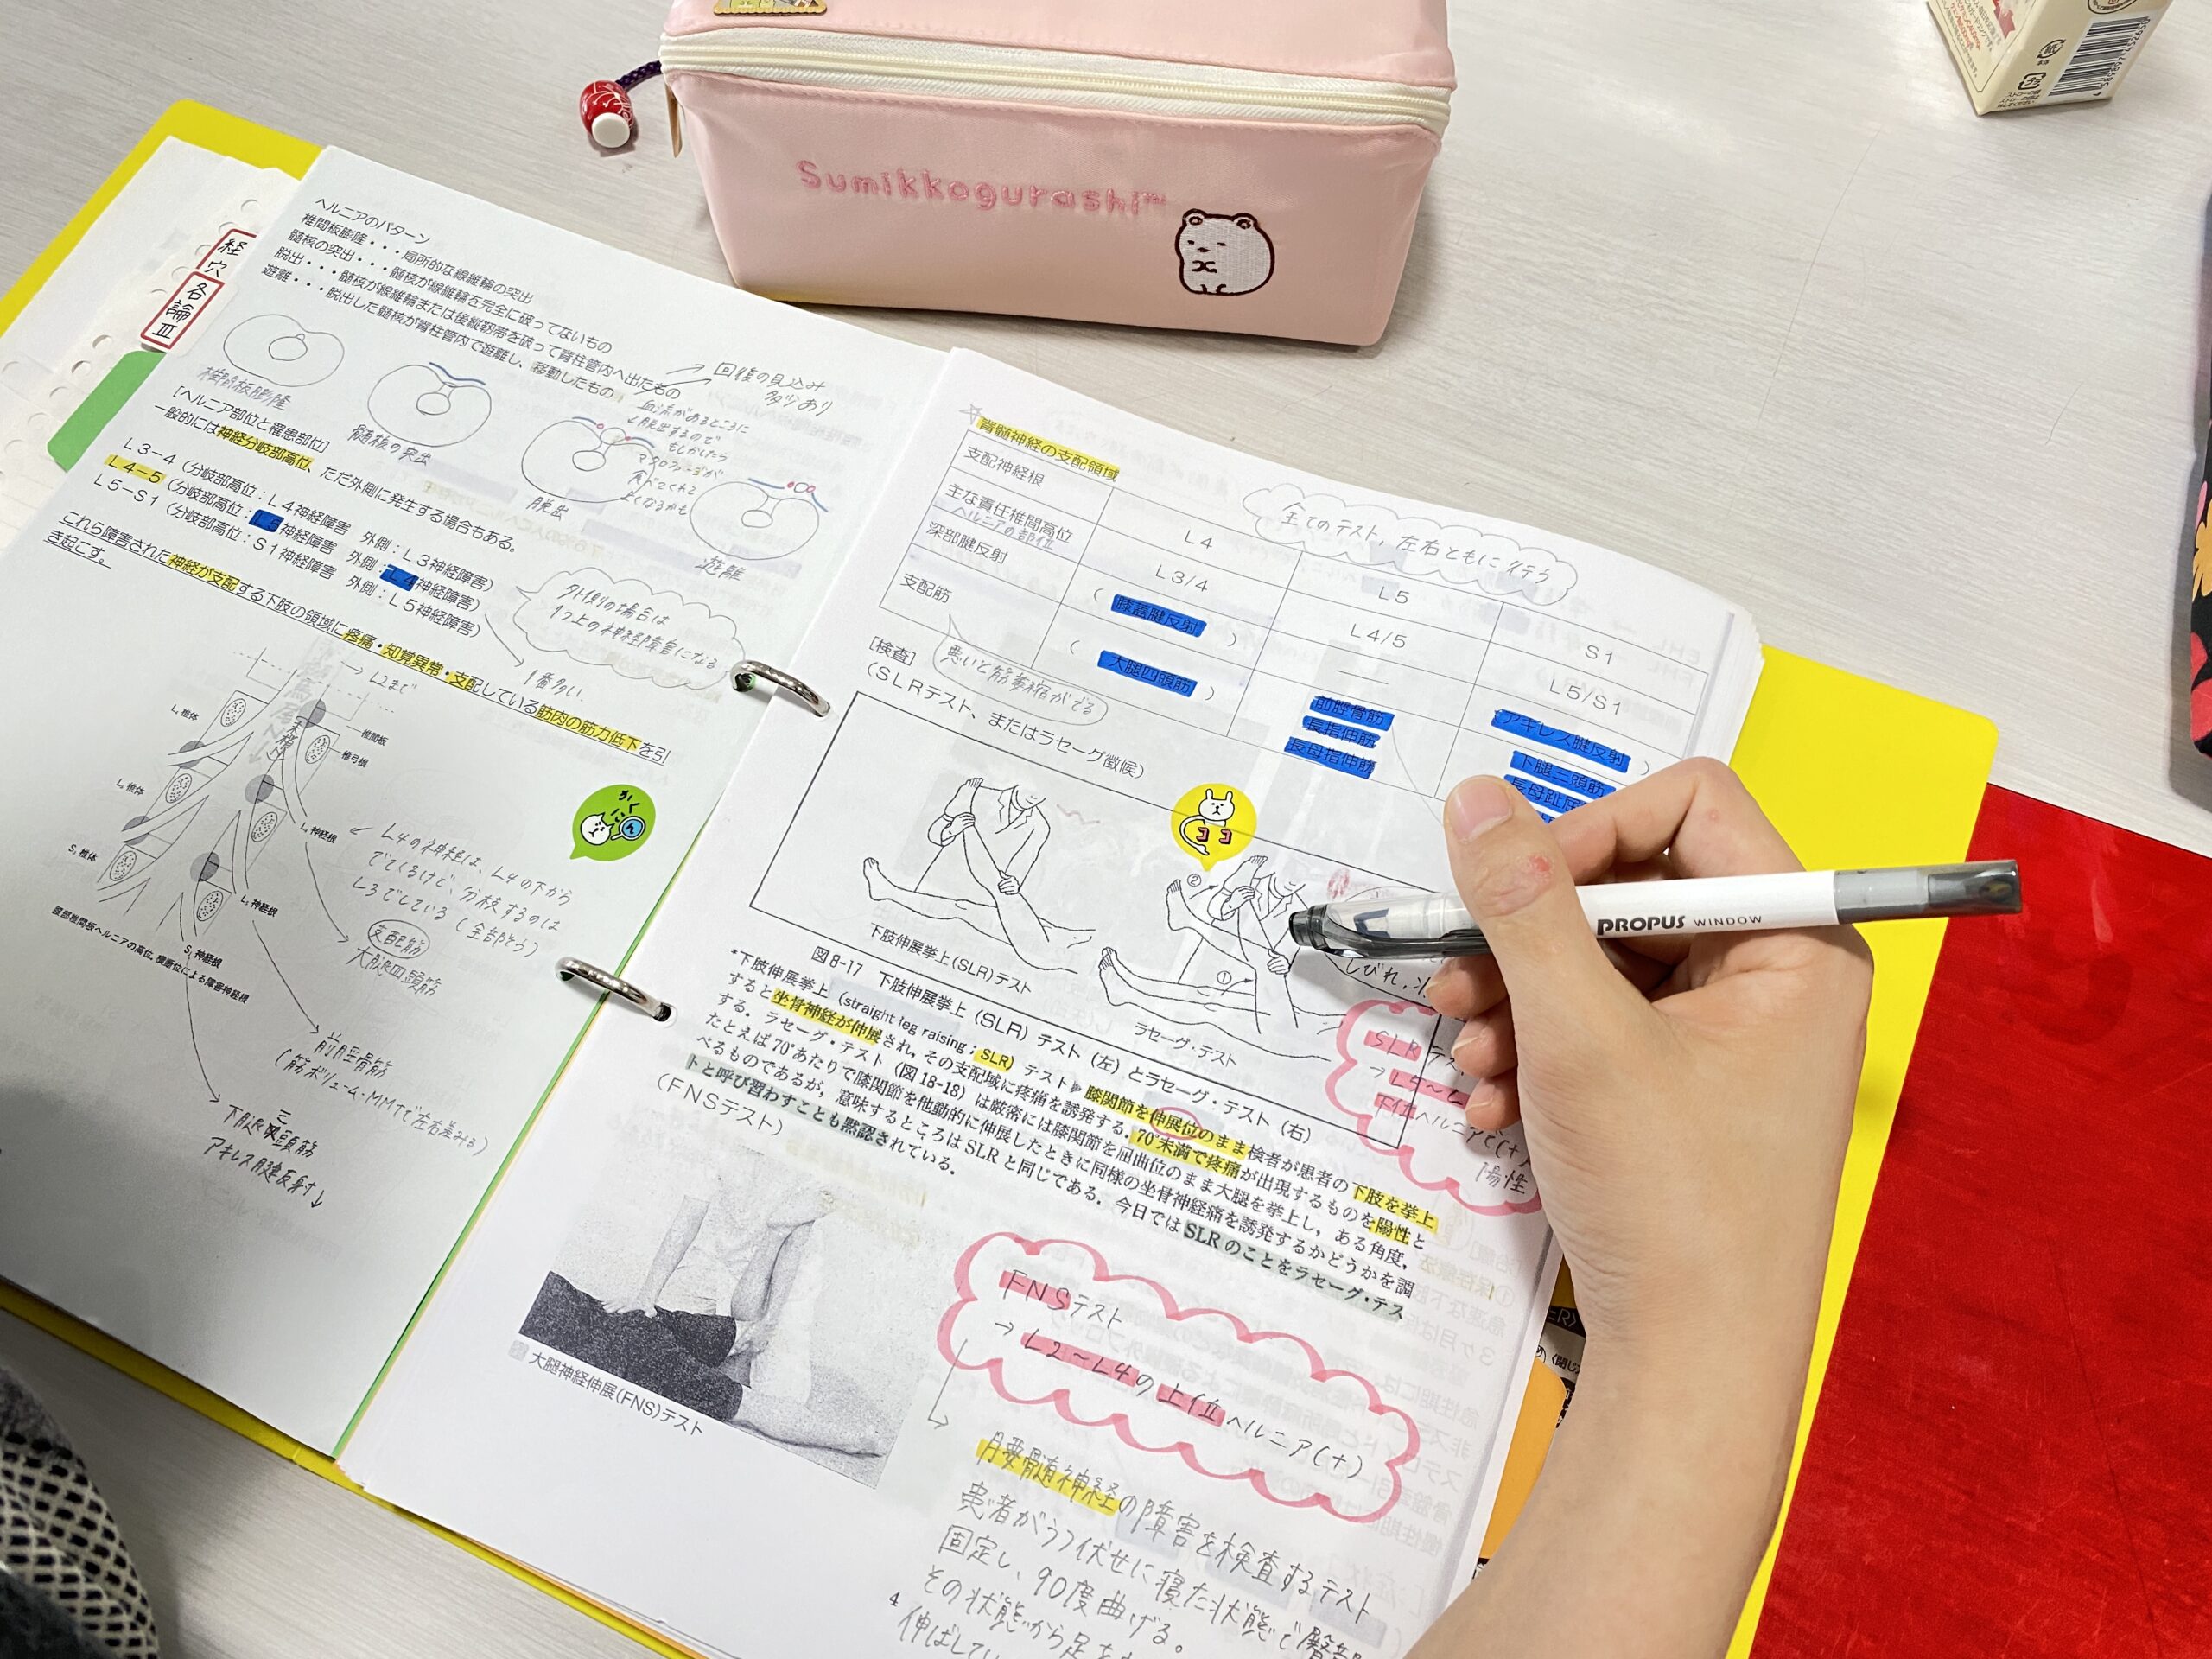 Sumikkogurashi™
経穴
各論Ⅲ
ヘルニアのパターン
椎間板膨隆・・・局所的な線維輪の突出
髄核の突出・・・髄核が線維輪を完全に破ってないもの
脱出・・・髄核が線維輪または後縦靭帯を破って脊柱管内へ出たもの
遊離・・・脱出した髄核が脊柱管内で遊離し、移動したもの
→回復の見込み
多少あり
血流があるところに
脱出するので
もしかしたら
マクロファージが
食べてくれて
よくなるかも
椎間板膨隆
髄核の突出
脱出
遊離
[ヘルニア部位と罹患部位]
一般的には神経分岐部高位、ただ外側に発生する場合もある。
L3-4（分岐部高位：L4神経障害　外側：L3神経障害）
L4-5（分岐部高位：L5神経障害　外側：L4神経障害）
L5-S1（分岐部高位：S1神経障害　外側：L5神経障害）
これら障害された神経が支配する下肢の領域に疼痛・知覚異常・支配している筋肉の筋力低下を引
き起こす。
外側の場合は
1つ上の神経障害になる
1番多い
→L2まで
L₄椎体
椎間板
椎弓根
L₅椎体
L₄神経根
S₁椎体
L₅神経根
S₁神経根
腰部椎間板ヘルニアの高位、横断位による障害神経根
かくにん
L4の神経は、L4の下から
でてくるけど、分枝するのは
L3でしている（全部そう）
支配筋
大腿四頭筋
前脛骨筋
（筋ボリューム・MMTで左右差みる）
下腿三頭筋
アキレス腱反射↓
脊髄神経の支配領域
全てのテスト、左右ともに行う
支配神経根 L4 L5 S1
主な責任椎間高位 L3/4 L4/5 L5/S1
ヘルニアの部位
深部腱反射 （膝蓋腱反射） ― アキレス腱反射）
支配筋 （大腿四頭筋） 前脛骨筋 下腿三頭筋
長指伸筋
長母指伸筋
悪いと筋萎縮がでる
[検査]
（SLRテスト、またはラセーグ徴候）
ココ
②
①
下肢伸展挙上(SLR)テスト
ラセーグ・テスト
しびれ,
図8-17　下肢伸展挙上（SLR）テスト（左）とラセーグ・テスト（右）
SLRテス
→L5～
下位ヘルニアで(+)
陽性
*下肢伸展挙上（straight leg raising；SLR）テスト 膝関節を伸展位のまま検者が患者の下肢を挙上
すると坐骨神経が伸展され，その支配域に疼痛を誘発する．70°未満で疼痛が出現するものを陽性と
する．ラセーグ・テスト（図18-18）は厳密には膝関節を屈曲位のまま大腿を挙上し，ある角度，
たとえば70°あたりで膝関節を他動的に伸展したときに同様の坐骨神経痛を誘発するかどうかを調
べるものであるが，意味するところはSLRと同じである．今日ではSLRのことをラセーグ・テス
トと呼び習わすことも黙認されている．
（FNSテスト）
大腿神経伸展(FNS)テスト
FNSテスト
→L2～L4の上位ヘルニア(+)
腰髄神経の障害を検査するテスト
患者がうつ伏せに寝た状態で
固定し、90度曲げる。
その状態から足を
伸ばしてい
4
PROPUS WINDOW